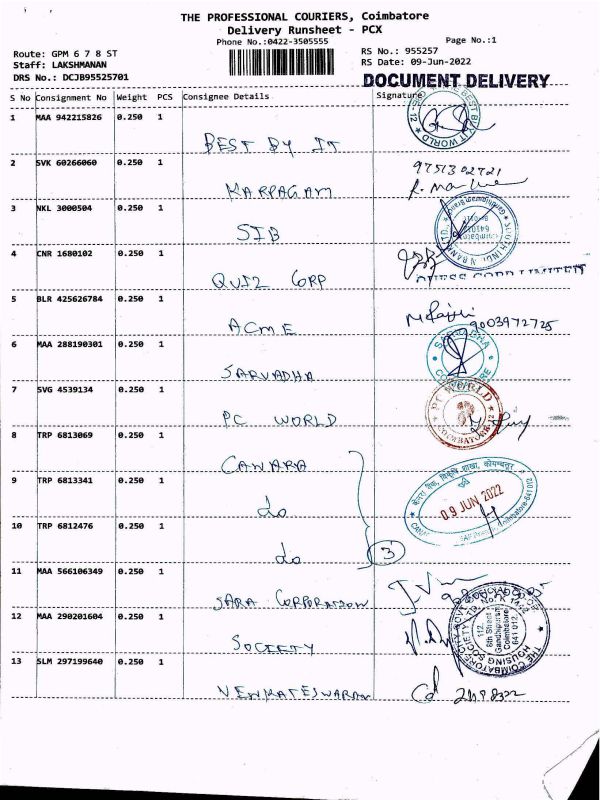 THE PROFESSIONAL COURIERS, Coimbatore
Delivery Runsheet - PCX
Phone No.:0422-3505555
Page No.:1
Route: GPM 6 7 8 ST
Staff: LAKSHMANAN
DRS No.: DCJB95525701
RS No.: 955257
RS Date: 09-Jun-2022
DOCUMENT DELIVERY
S No Consignment No Weight PCS Consignee Details Signature
1 MAA 942215826 0.250 1
BEST BY IT
2 SVK 60266060 0.250 1
9751302721
KARPAGAM
3 NKL 3000504 0.250 1
SIB
4 CNR 1680102 0.250 1
QUIZ CORP
5 BLR 425626784 0.250 1
ACME
9003972725
6 MAA 288190301 0.250 1
SARVADHA
7 SVG 4539134 0.250 1
PC WORLD
COIMBATORE-12
PC WORLD
8 TRP 6813069 0.250 1
CANARA
9 TRP 6813341 0.250 1
do
09 JUN 2022
10 TRP 6812476 0.250 1
do
3
11 MAA 566106349 0.250 1
SARA CORPORATION
12 MAA 290201604 0.250 1
SOCIETY
112,
8th Street
Gandhipuram
Coimbatore
641 012
13 SLM 297199640 0.250 1
VENKATESWARAN